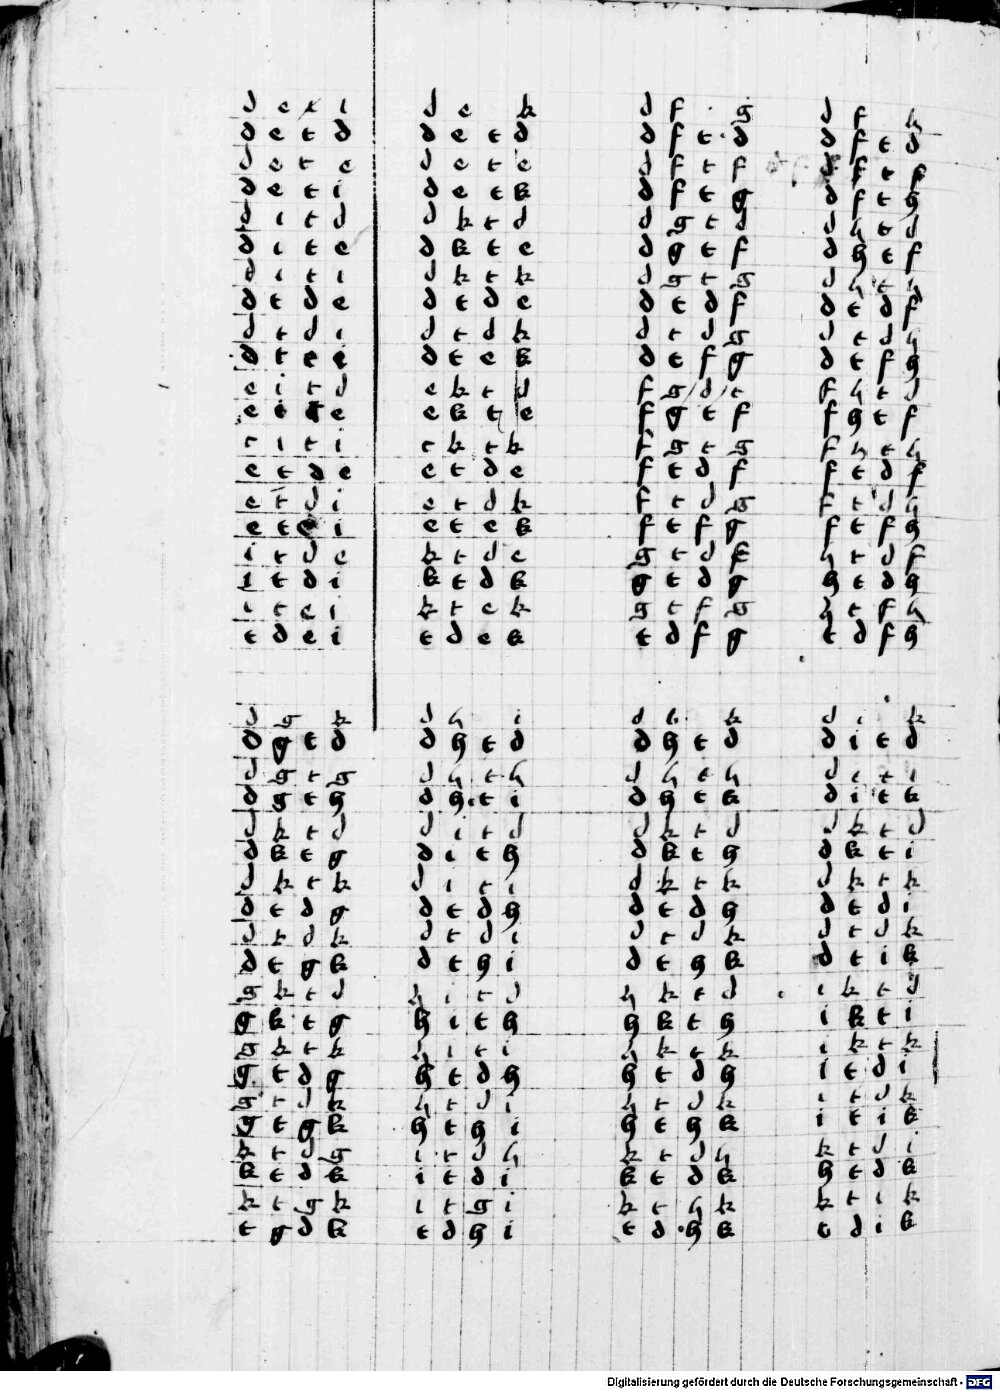 d e i d e k d f g d f h
d e t d d e t d d f t d d f t d
d e t e d e t e d f t f d f t f
d e t i d e t k d f t g d f t h
d i t d d k t d d g t d d h t d
d i t e d k t e d g t f d h t f
d i t i d k t k d g t g d h t h
d t d e d t d e d t d f d t d f
d t d i d t d k d t d g d t d h
d t e i d t e k d t f g d t f h
e i t d e k t d f g d t f h t d
e i t e e k t e f g t f f h t f
e i t i e k t k f g t g f h t h
e t d e e t d e f t d f f t d f
e t d i e t d k f t d g f t d h
e t e i e t e k f t f g f t f h
i t d e k t d e g t d f h t d f
i t d i k t d k g t d g h t d h
i t e i k t e k g t f g h t f h
t d e i t d e k t d f g t d f h
d g k d h i d h k d i k
d g t d d h t d d h t d d i t d
d g t g d h t h d h t h d i t i
d g t g d h t i d h t k d i t k
d k t d d i t d d k t d d k t d
d k t g d i t h d k t h d k t i
d k t k d i t i d k t k d k t k
d t d g d t d h d t d h d t d i
d t d k d t d i d t d k d t d k
d t g k d t h i d t h k d t i k
g k t d h i t d h k t d i k t d
g k t g h i t h h k t h i k t i
g k t k h i t i h k t k i k t k
g t d g h t d h h t d h i t d i
g t d k h t d i h t d k i t d k
g t g k h t h i h t h k i t i k
k t d g i t d h k t d h k t d i
k t d k i t d i k t d k h t d k
k t g k i t g i k t h k k t i k
t g d k t d h i t d h k t d i k
Digitalisierung gefördert durch die Deutsche Forschungsgemeinschaft - DFG